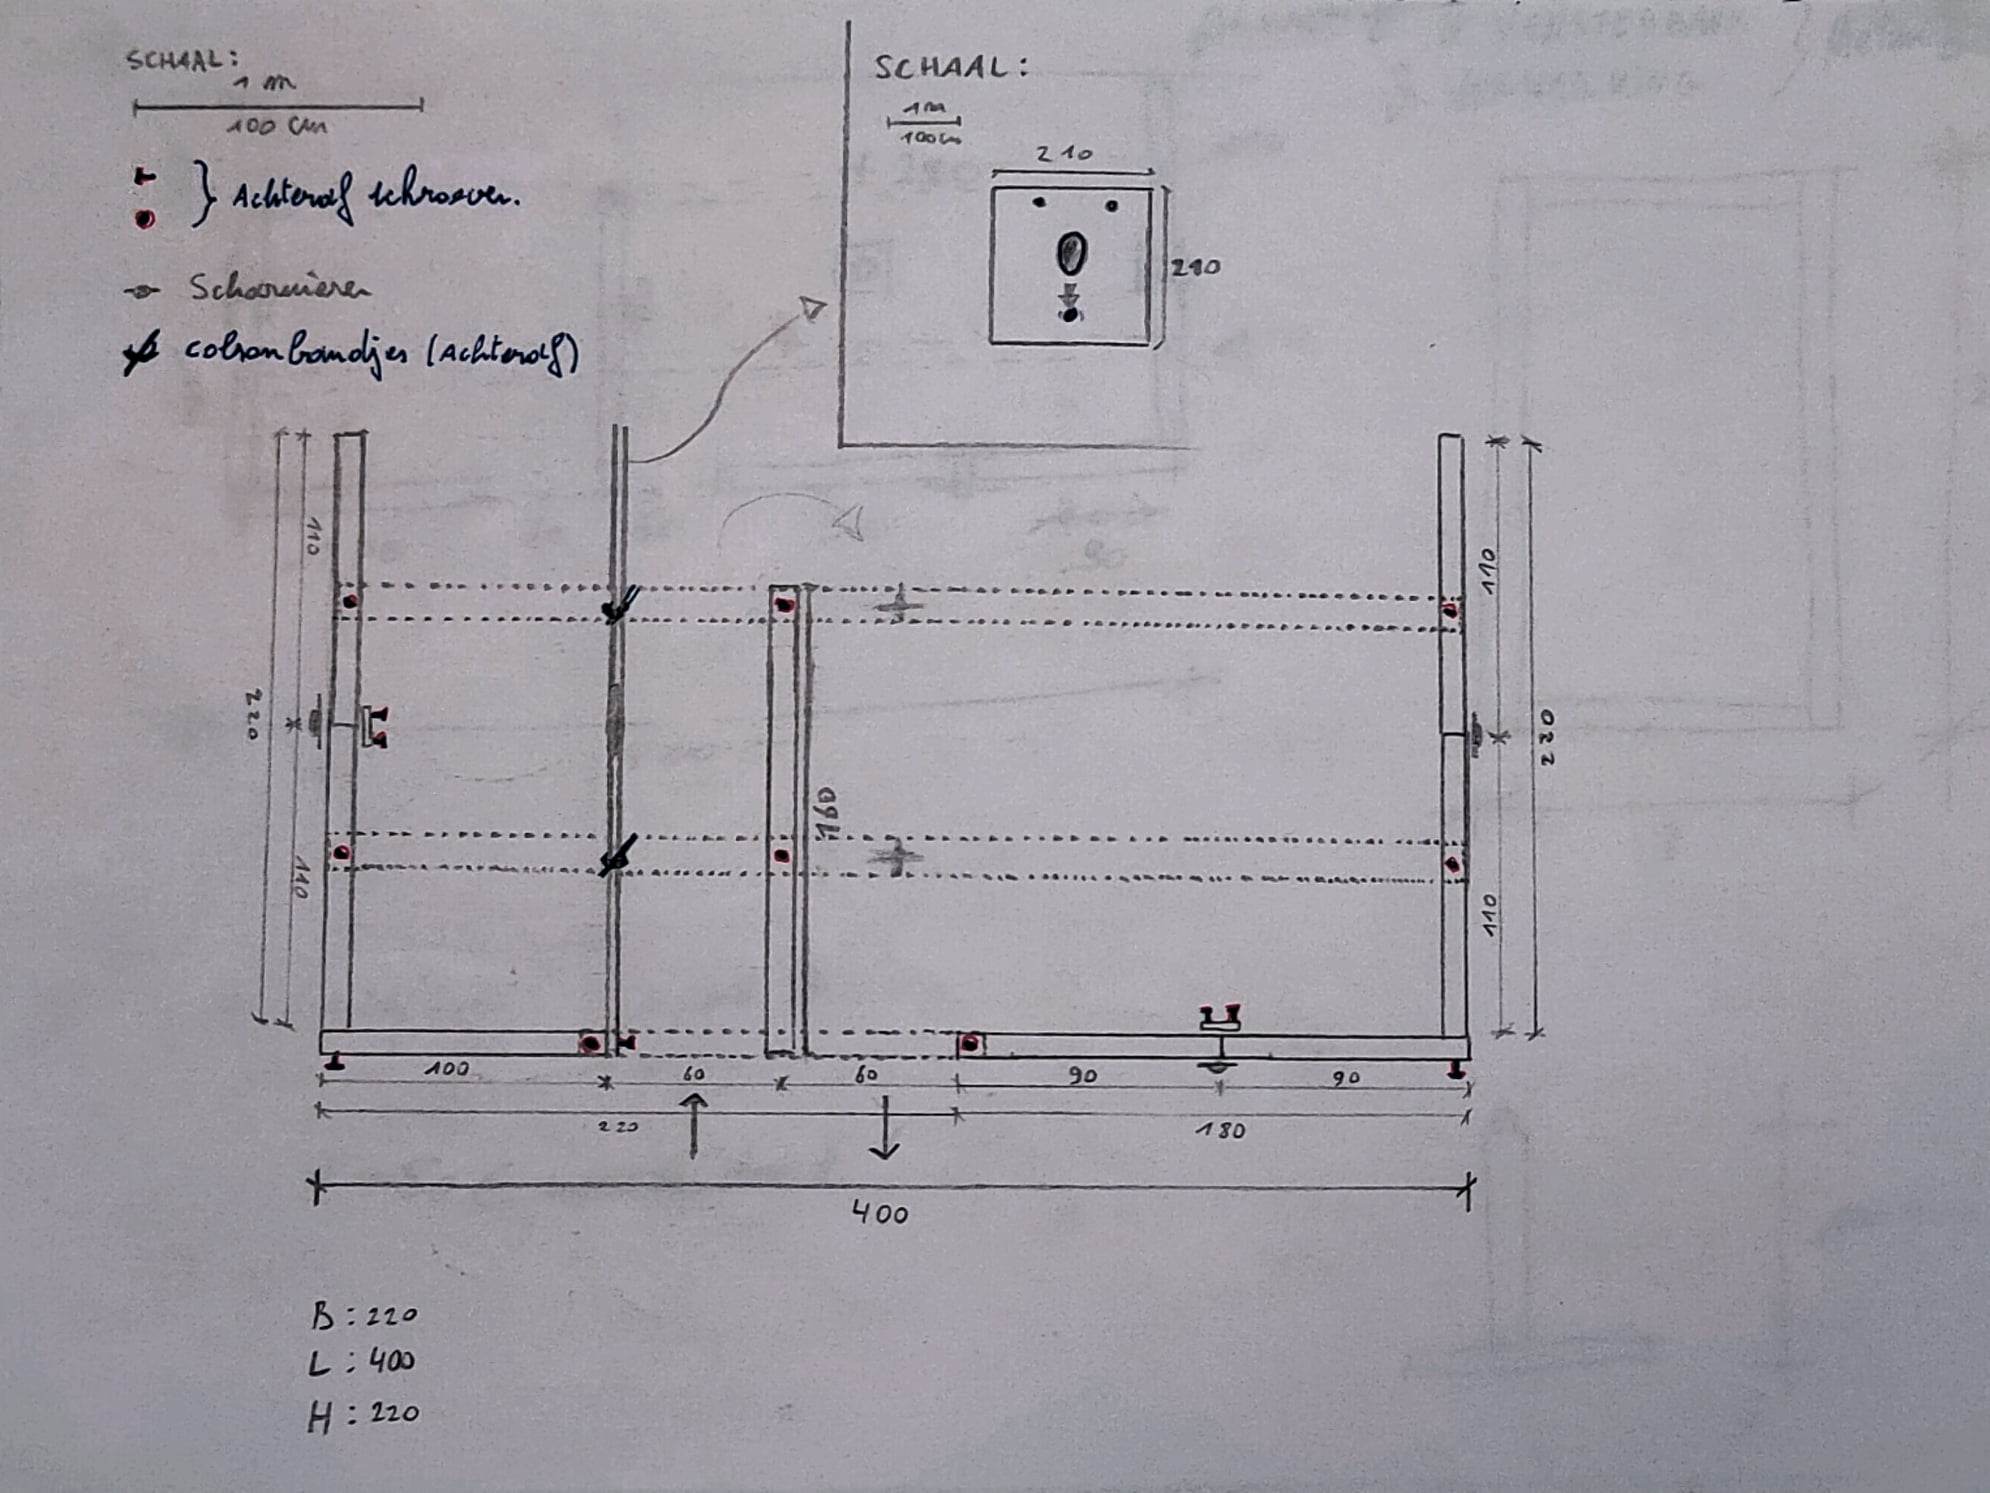 SCHAAL:
1 m
100 cm
} Achteraf schroeven.
Scharnieren
colsonbandjes (Achteraf)
SCHAAL:
1m
100cm
210
210
110
220
110
160
110
220
110
100
60
60
90
90
220
180
400
B : 220
L : 400
H : 220